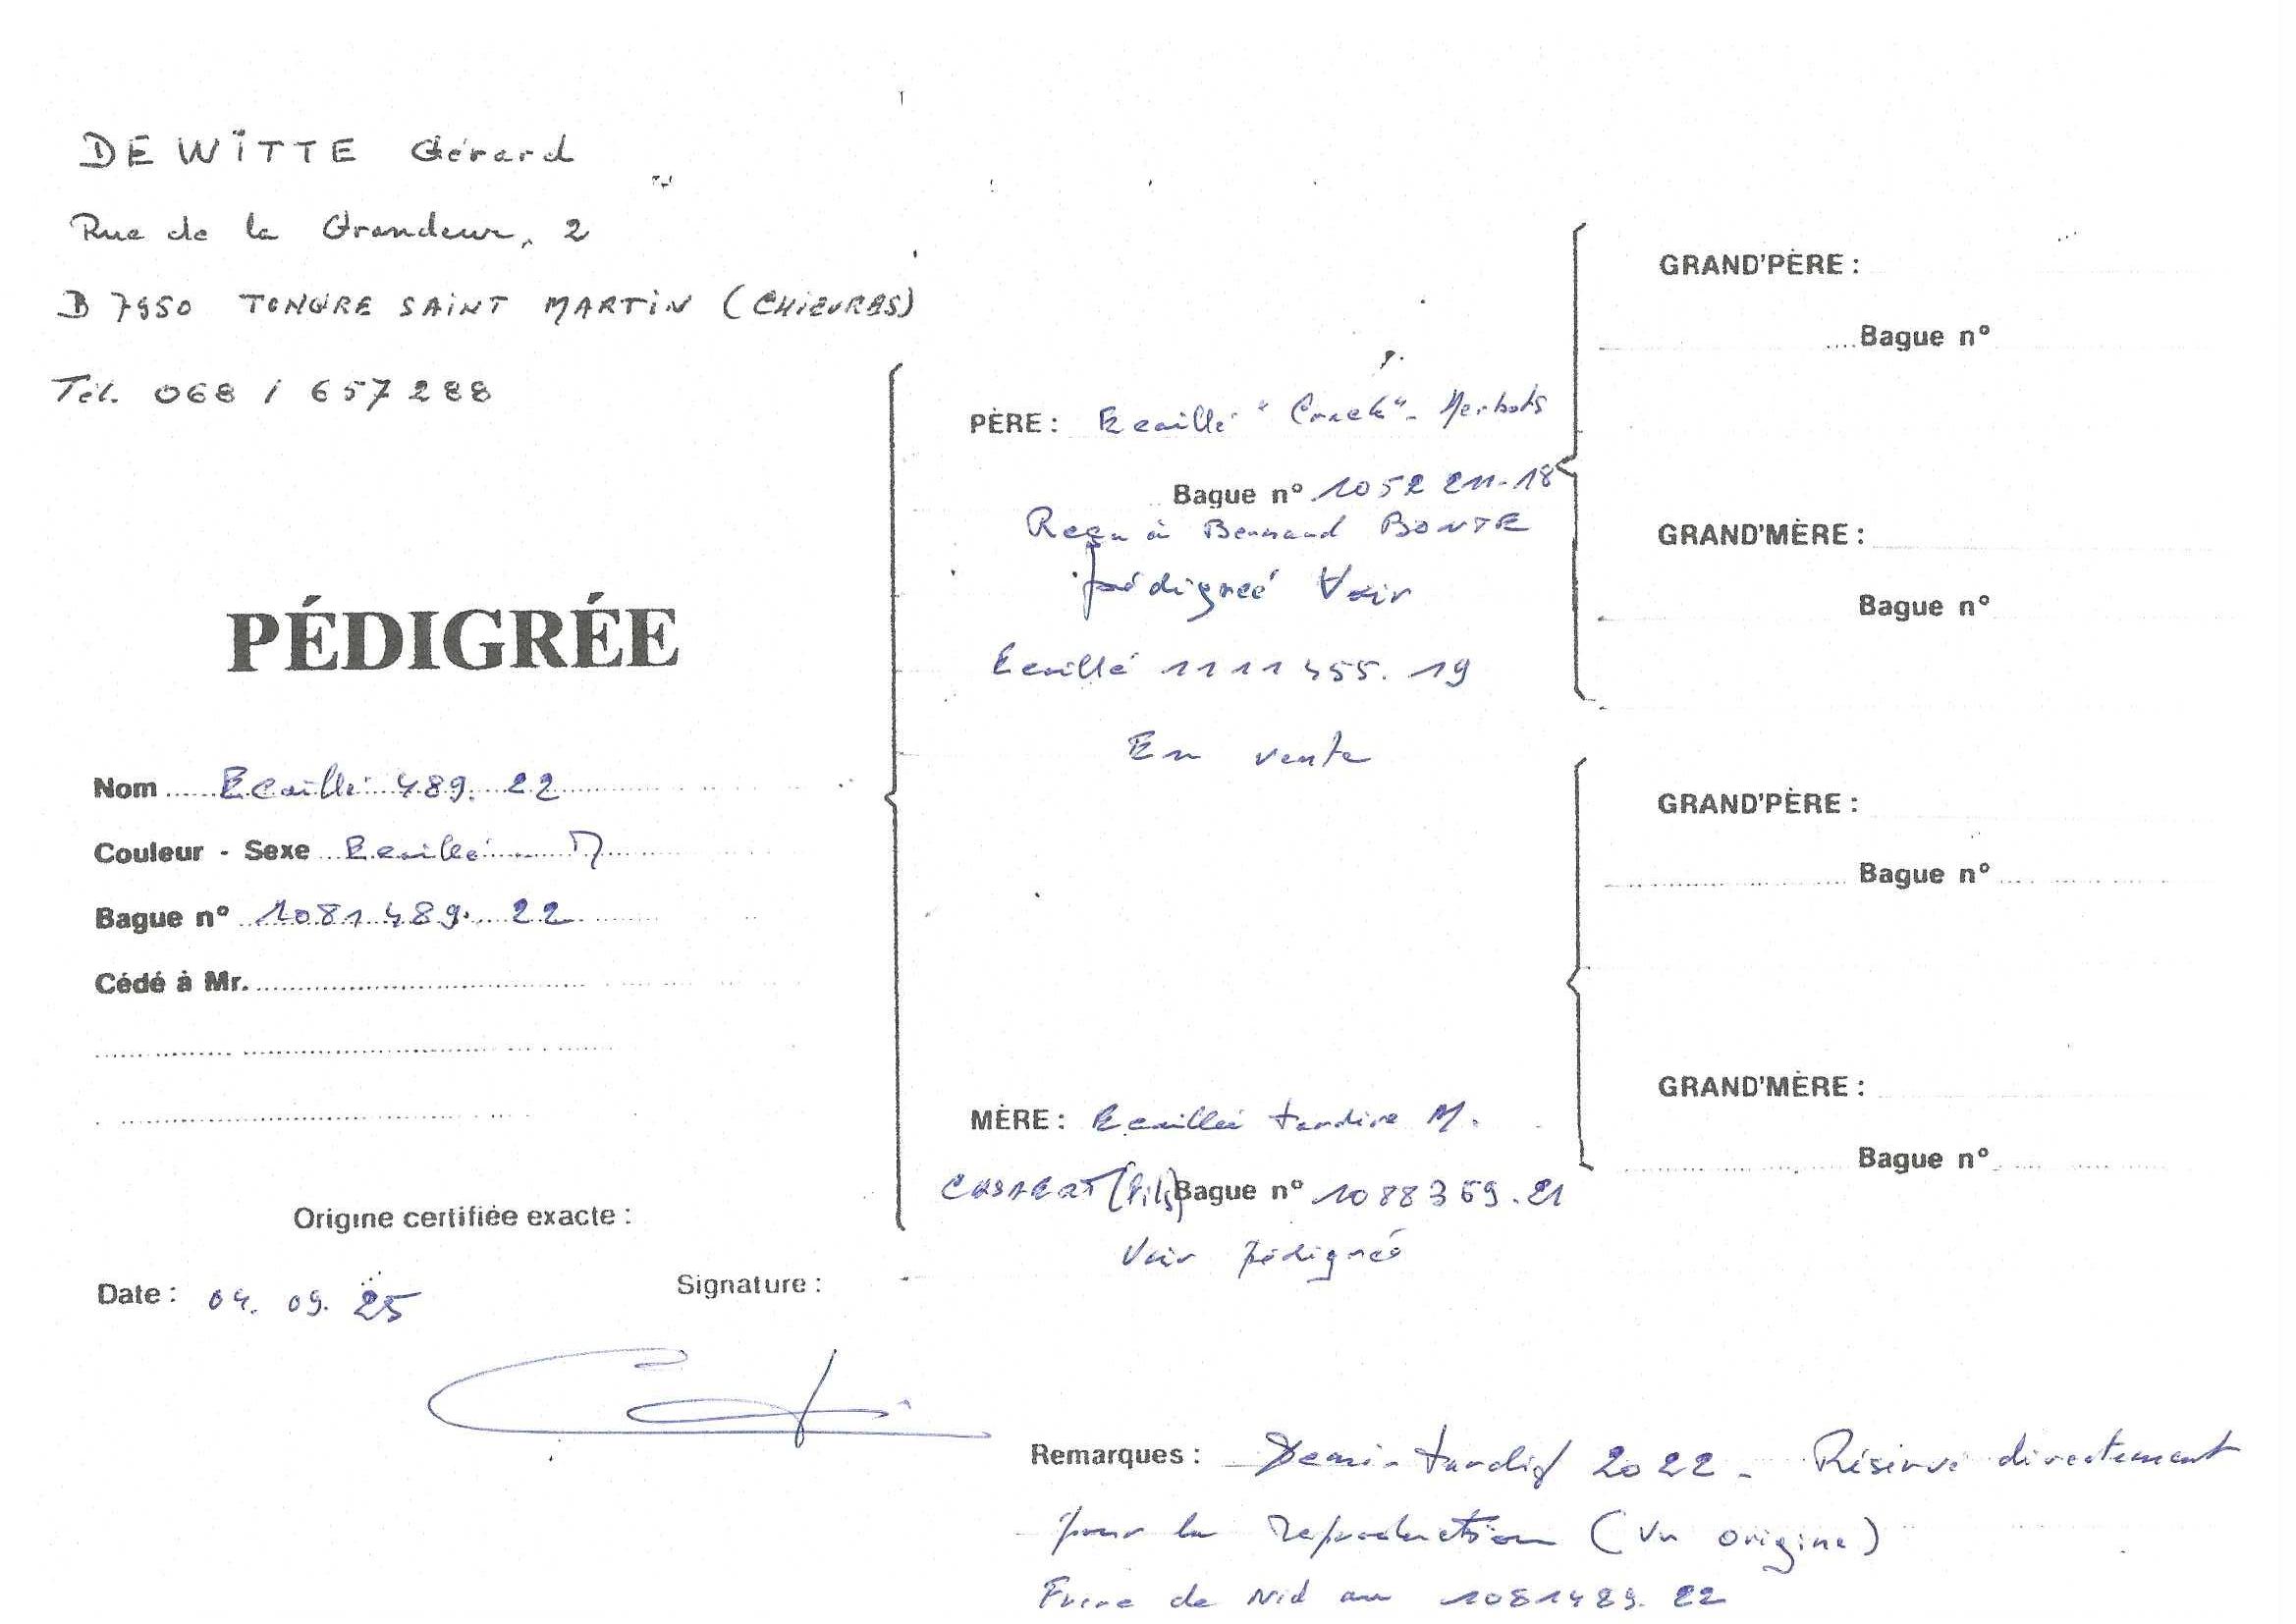 DE WITTE Gérard
Rue de la Grandeur, 2
B 7950 TONGRE SAINT MARTIN (CHIEVRES)
Tél. 068 / 657288
PÉDIGRÉE
Nom Ecaillé 489. 22
Couleur - Sexe Ecaillé M
Bague n° 1081489. 22
Cédé à Mr.
Origine certifiée exacte :
Date : 04. 09. 25
Signature :
PÈRE : Ecaillé "Crack" - Herbots
Bague n° 1052211-18
Reçu à Bernard BONTE
pédigreé Voir
Ecaillé 1111455. 19
En vente
MÈRE : Ecaillée tardive M.
(Fils) Bague n° 1088369. 21
Voir pédigreé
GRAND'PÈRE :
Bague n°
GRAND'MÈRE :
Bague n°
GRAND'PÈRE :
Bague n°
GRAND'MÈRE :
Bague n°
Remarques : Demi-tardif 2022 - Réservé directement
pour la Reproduction (Vu origine)
Frère de Nid au 1081489. 22